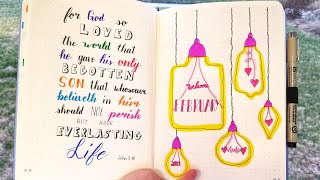 for God so
LOVED
the world that
he gave his only
BEGOTTEN
SON that whosoever
believeth in him
should NOT perish
BUT HAVE
EVERLASTING
Life
John 3:16
welcome
FEBRUARY